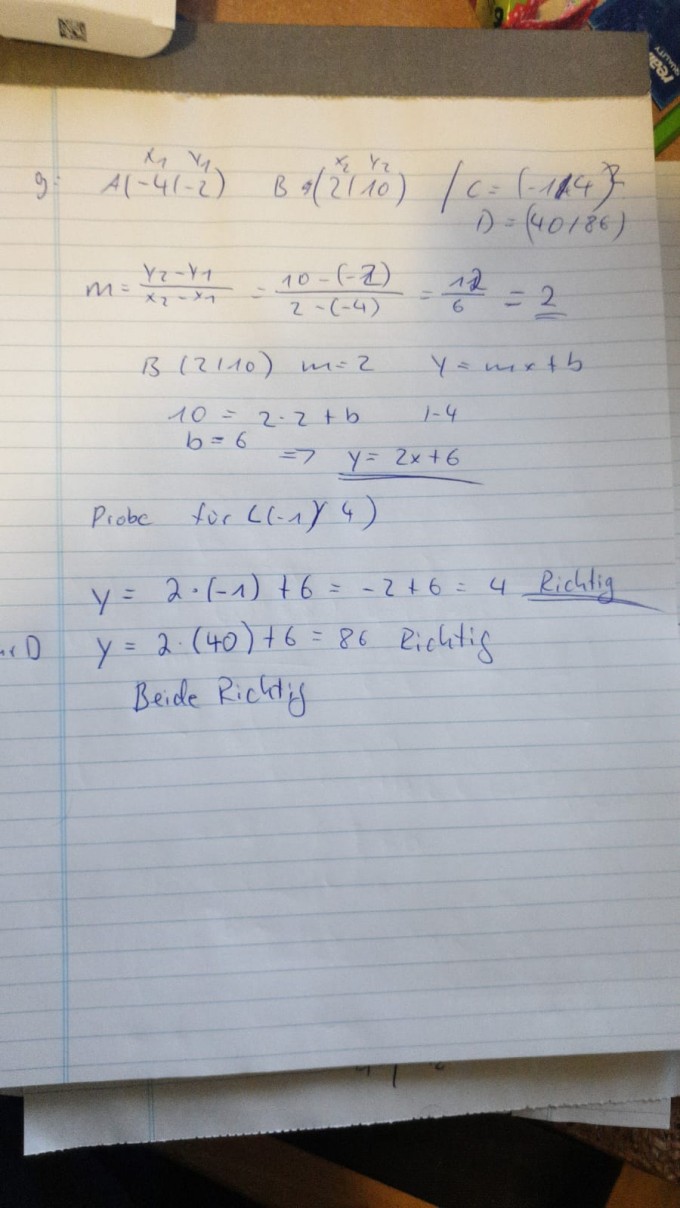 real
QUALITY
x₁ y₁ x₂ y₂
g: A(-4|-2) B (2|10) / C = (-1|4)
D = (40/86)
m = y₂-y₁/x₂-x₁ = 10-(-2)/2-(-4) = 12/6 = 2
B (2|10) m=2 y = mx+b
10 = 2·2+b |-4
b = 6
=> y = 2x+6
Probe für C(-1/4)
y = 2·(-1)+6 = -2+6 = 4 Richtig
D y = 2·(40)+6 = 86 Richtig
Beide Richtig